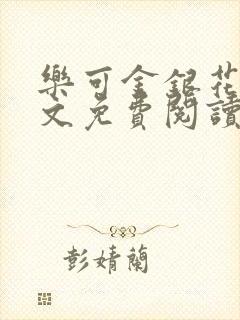 樂可金銀花
文免費閱讀
彭婧蘭